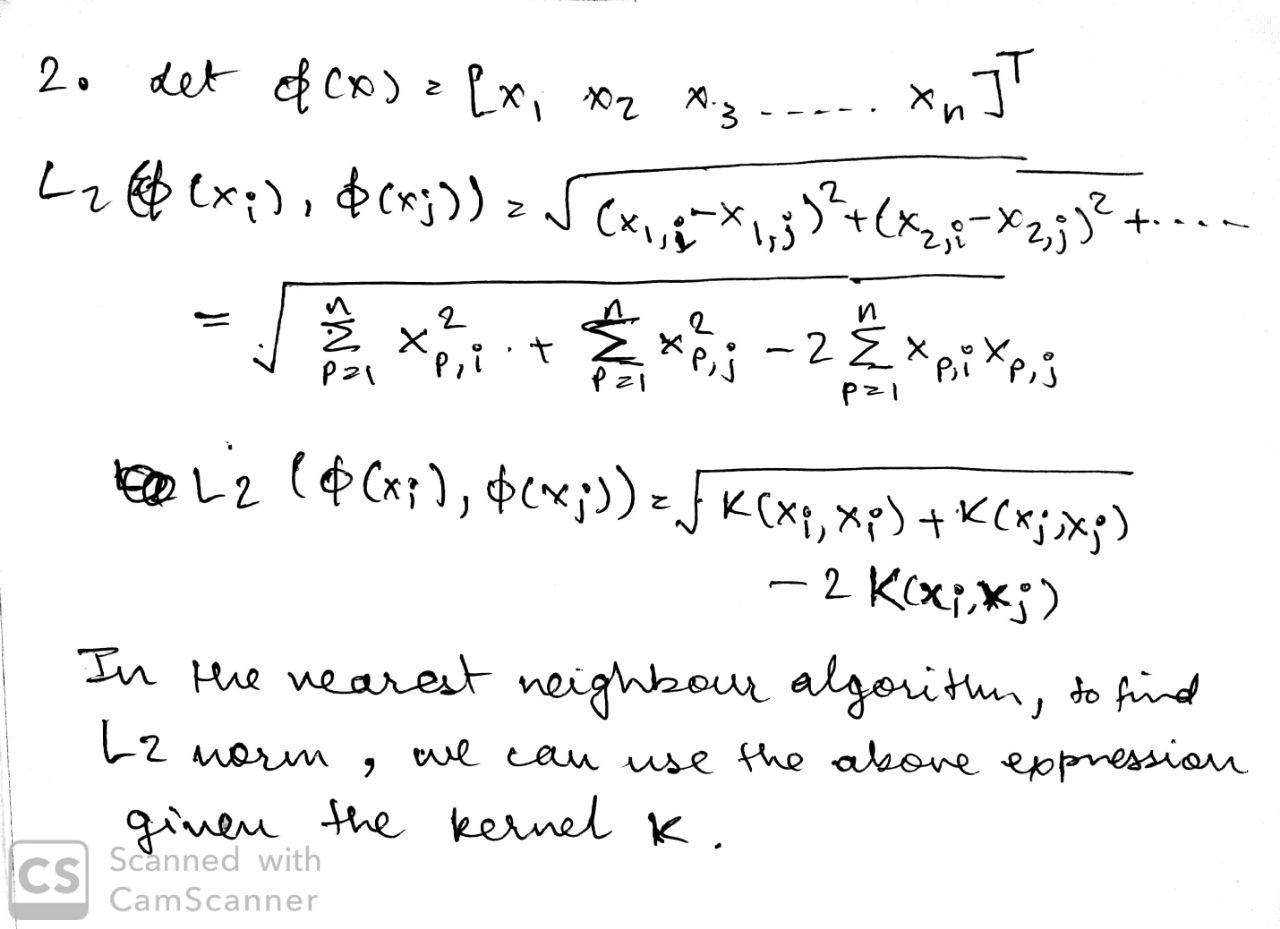 2. Let ϕ(x) = [x₁ x₂ x₃ ----- . xₙ]ᵀ
L₂(ϕ(xᵢ), ϕ(xⱼ)) = √((x₁,ᵢ - x₁,ⱼ)² + (x₂,ᵢ - x₂,ⱼ)² + ....
= √(∑ₚ₌₁ⁿ x²ₚ,ᵢ + ∑ₚ₌₁ⁿ x²ₚ,ⱼ - 2 ∑ₚ₌₁ⁿ xₚ,ᵢ xₚ,ⱼ
L₂ (ϕ(xᵢ), ϕ(xⱼ)) = √(K(xᵢ, xᵢ) + K(xⱼ, xⱼ)
- 2 K(xᵢ, xⱼ)
In the nearest neighbour algorithm, to find
L2 norm, we can use the above expression
given the kernel K.
CS Scanned with
CamScanner